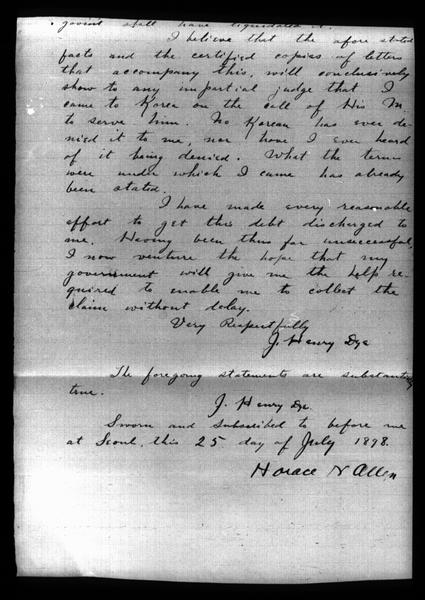 govint shall have liquidated it.
I believe that the afore stated
facts and the certified copies of letters
that accompany this, will conclusively
show to any impartial judge that I
came to Korea on the call of His M.
to serve him. No Korean has ever de-
nied it to me, nor have I ever heard
of it being denied. What the terms
were under which I came has already
been stated.
I have made every reasonable
effort to get this debt discharged to
me. Having been thus far unsuccessful,
I now venture the hope that my
government will give me the help re-
quired to enable me to collect the
claim without delay.
Very Respectfully
J. Henry Dye
The foregoing statements are substantially
true.
J. Henry Dye
Sworn and subscribed to before me
at Seoul, this 25 day of July 1898.
Horace N Allen